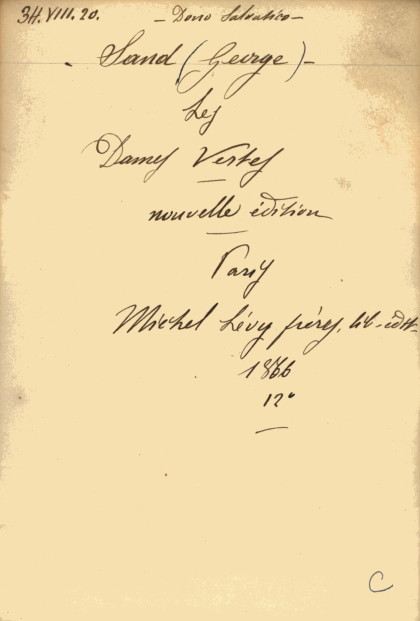 3H.VIII.20. - Dono Salvatico -
Sand (George) -
Les
Dames Vertes
nouvelle édition
Paris
Michel Lévy frères, lib-édit-
1866
12°
C